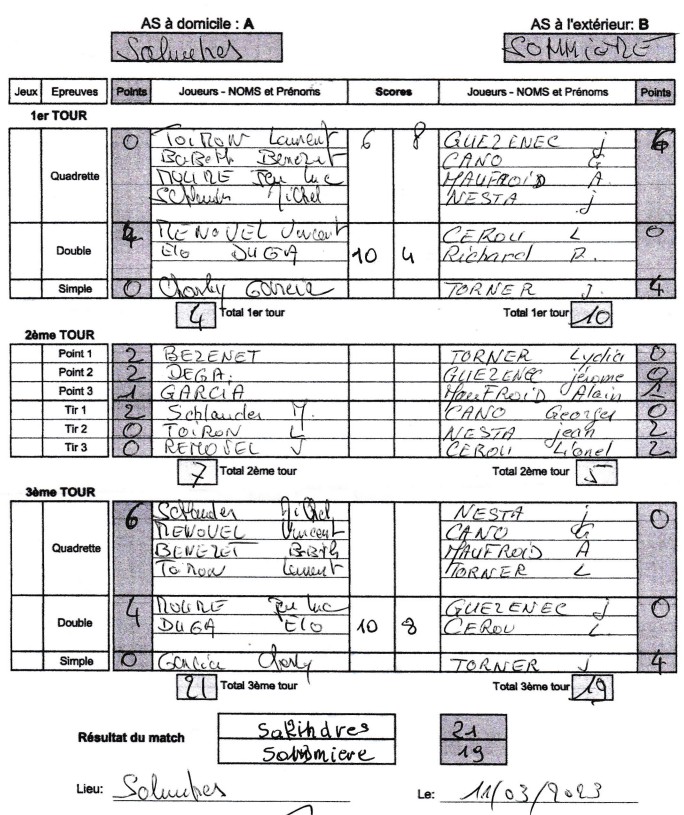 AS à domicile : A AS à l'extérieur: B
SOMMIERE
Jeux Epreuves Points Joueurs - NOMS et Prénoms Scores Joueurs - NOMS et Prénoms Points
1er TOUR
Quadrette 0 TOIRON Laurent 6 8 GUEZENEC j 6
BaBeth Benezet CANO G
MOURE Jeu luc MAUFROID A.
Schlauder Michel NESTA j
Double 4 RENOUEL Vincent CEROU L 0
Elo DUGA 10 4 Richard R.
Simple 0 Charly Garcia TORNER J. 4
4 Total 1er tour Total 1er tour 10
2ème TOUR
Point 1 2 BEZENET TORNER Lydia 0
Point 2 2 DEGA. GUEZENEC jérome 0
Point 3 1 GARCIA MauFROID Alain 1
Tir 1 2 Schlauder M. CANO Georges 0
Tir 2 0 TOIRON L NESTA jean 2
Tir 3 0 REMOSEL V CEROU Lionel 2
7 Total 2ème tour Total 2ème tour 5
3ème TOUR
Quadrette 6 Schauder Michel NESTA j 0
RENOUEL Vincent CANO G
BENEZET BaBeth MAUFROID A
Toiron Laurent TORNER L
Double 4 MOURE Jeu luc GUEZENEC J 0
DUGA Elo 10 8 CEROU L
Simple 0 Garcia Charly TORNER J 4
21 Total 3ème tour Total 3ème tour 19
Résultat du match 21
19
Lieu: Le: 11/03/2023